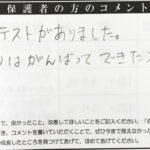 保護者の方のコメント
テストがありました。
はがんばってできた
で、良かったこと、改善してほしいことをご記入ください。
き、コメントを書いていただくことで、ぜひ今まで見えなかった
成長したところを見つけてあげて、ほめてあげてください。